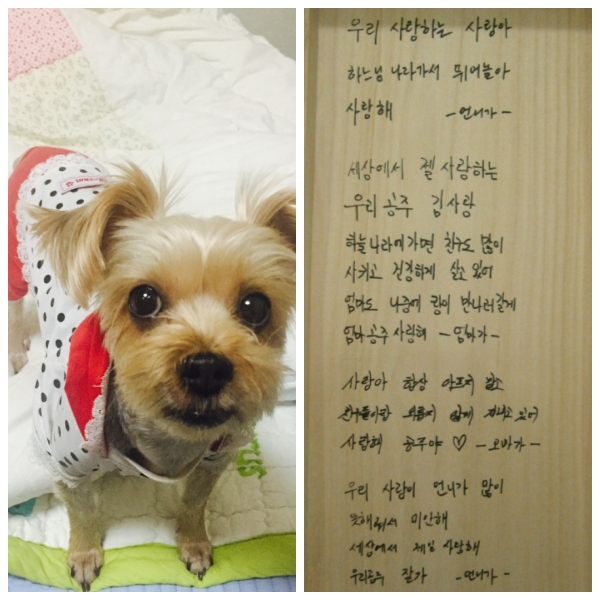 우리 사랑하는 사랑아
하느님 나라가서 뛰어놀아
사랑해 -언니가-
세상에서 젤 사랑하는
우리공주 김사랑
하늘나라에가면 친구도 많이
사귀고 건강하게 살고 있어
엄마도 나중에 랑이 만나러갈게
엄마공주 사랑해 -엄마가-
사랑아 항상 아프지 말고
친구들이랑 외롭지 않게 지내고 있어
사랑해 공주야 ♡ -오빠가-
우리 사랑이 언니가 많이
못해줘서 미안해
세상에서 제일 사랑해
우리공주 잘가 -언니가-